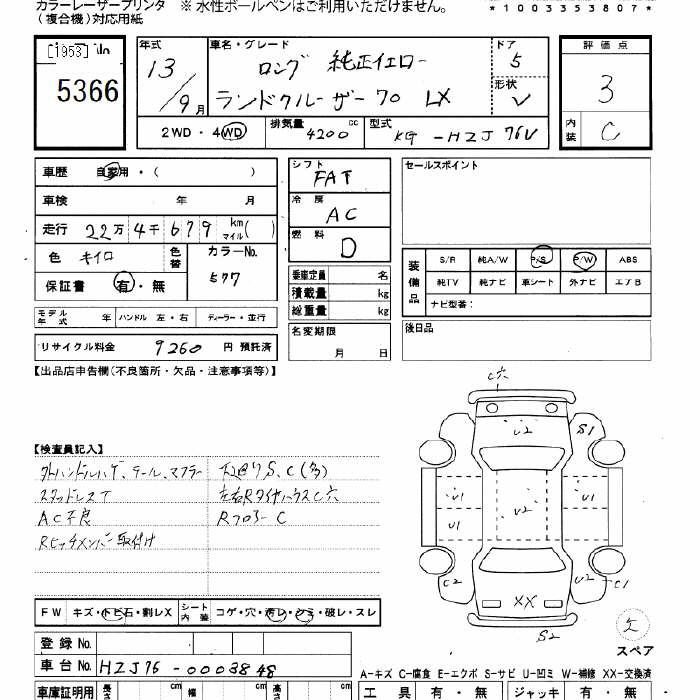 カラーレーザープリンタ ※ 水性ボールペンはご利用いただけません。
(複合機)対応用紙
*1003353807*
[1953]
5366
年式
13
/9月
車名・グレード
ロング 純正イエロー
ランドクルーザー70 LX
ドア
5
形状
V
評価点
3
内装
C
2WD・4WD
排気量 4200 cc
型式 KG-HZJ76V
車歴 自家用・( )
車検 年 月
走行 22万4千679 km マイル( )
色 キイロ
色替
カラーNo. 577
保証書 有・無
シフト FAT
冷房 AC
燃料 D
セールスポイント
装備品
S/R 純A/W P/S P/W ABS
純TV 純ナビ 車シート 外ナビ エアB
ナビ型番:
乗車定員 名
積載量 kg
総重量 kg
モデル年式 年 ハンドル 左・右 ディーラー・並行
リサイクル料金 9260 円 預託済
名変期限 月 日
後日品
【出品店申告欄(不良箇所・欠品・注意事項等)】
【検査員記入】
外ハンドルハゲ、テール、マフラー
スタッドレスT
AC不良
Rヒッチメンバー取付け
下廻りS、C(多)
左右RタイヤハウスC穴
Rフロアー C
C穴
U2
S1
U1
U1
U1
U2
C2
U2
C1
XX
S2
スペア
FW キズ・トビ石・割レX シート内装 コゲ・穴・汚レ・シミ・破レ・スレ
登録No.
車台No. HZJ76-0003848
A-キズ C-腐食 E-エクボ S-サビ U-凹ミ W-補修 XX-交換済
車庫証明用 長さ cm 幅 cm 高さ cm
工具 有・無 ジャッキ 有・無